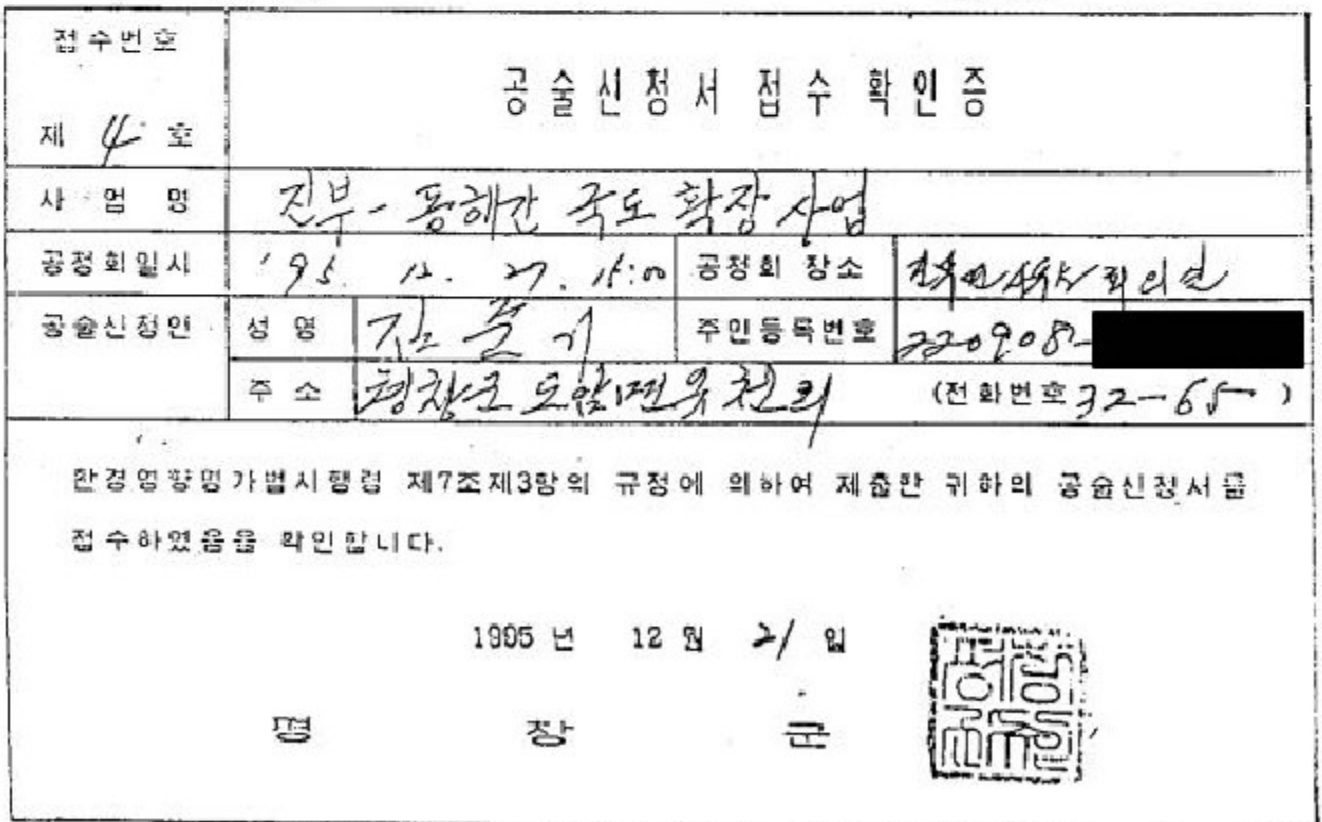 접수번호
제 4 호
공술신청서 접수 확인증
사업명
진부-동해간 국도 확장 사업
공청회일시
'95. 12. 27. 15:00
공청회 장소
회의실
공술신청인
성명
주민등록번호
220908-
주소
평창군 도암면 유천리
(전화번호 32-65 )
환경영향평가법시행령 제7조제3항의 규정에 의하여 제출한 귀하의 공술신청서를
접수하였음을 확인합니다.
1995 년 12 월 21 일
평 창 군